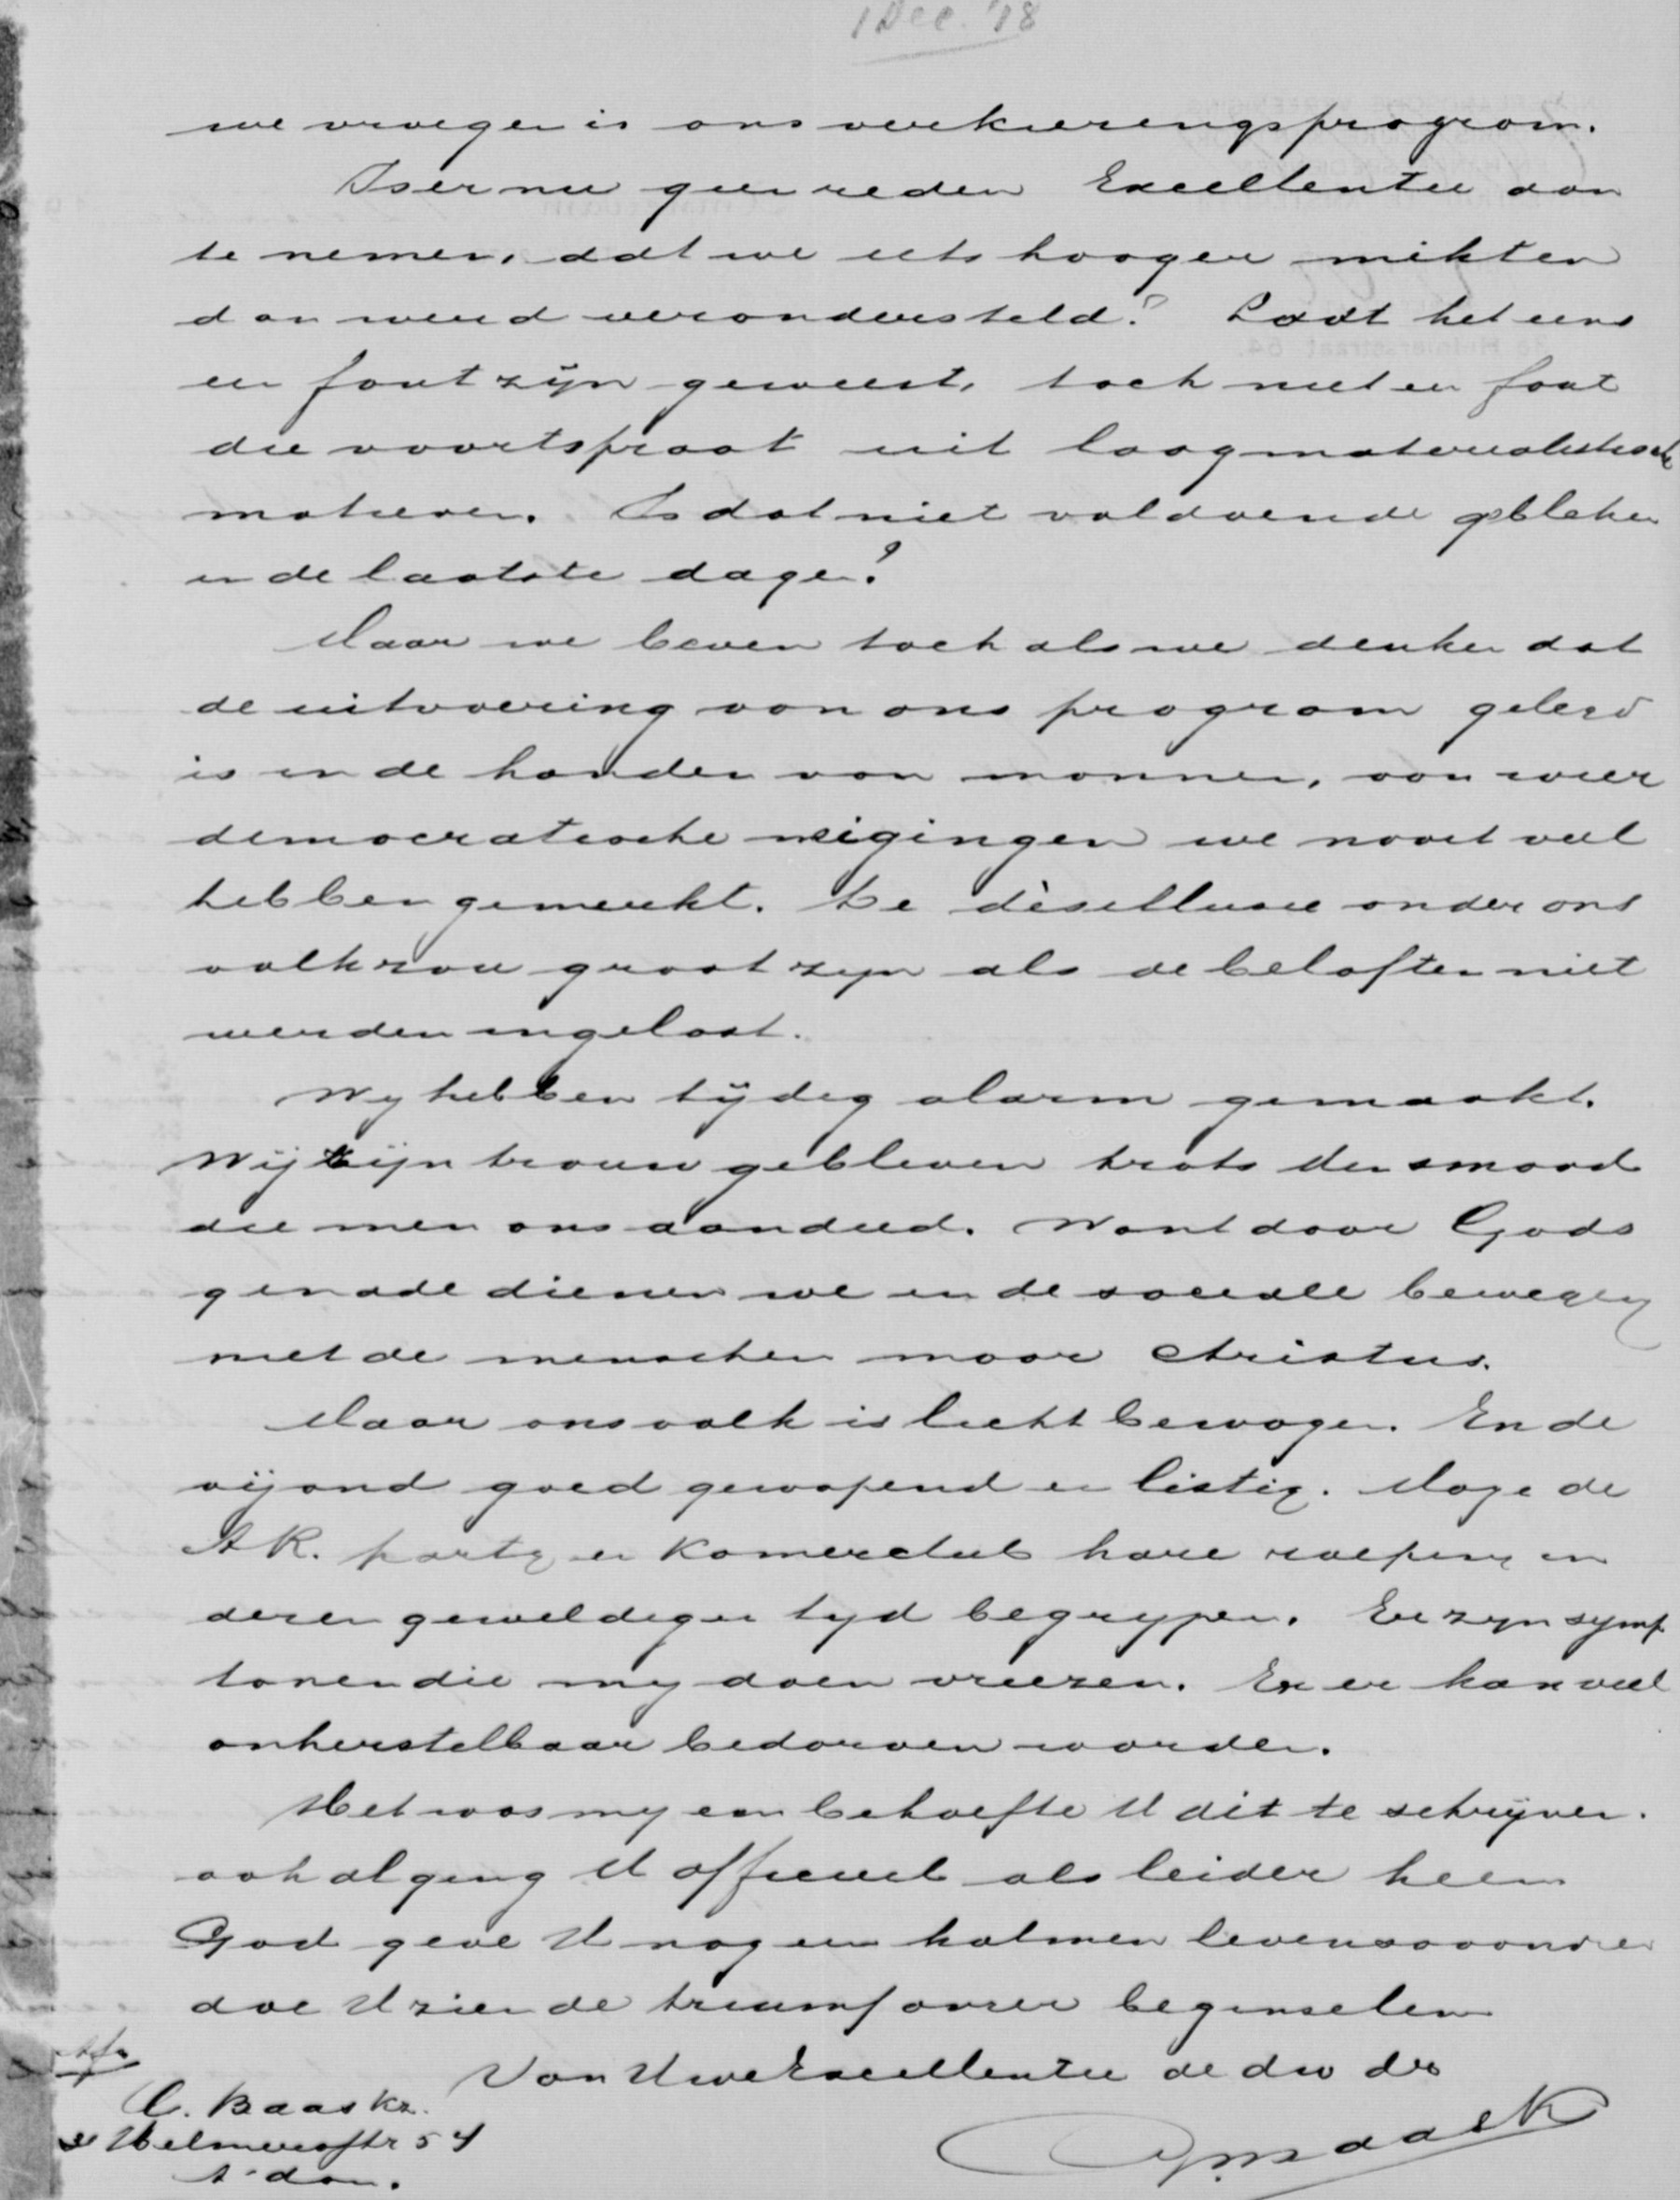 1 Dec. '18
we vroegen is ons verkiezingsprogram.
Is er nu geen reden Excellentie aan
te nemen, dat we iets hooger mikten
dan werd verondersteld? Laat het eens
een fout zijn geweest, toch niet een fout
die voortsproot uit laag materialistische
motieven. Is dat niet voldoende gebleken
in de laatste dagen?
Maar we beven toch als we denken dat
de uitvoering van ons program gelegd
is in de handen van mannen, van wier
democratische neigingen we nooit veel
hebben gemerkt. De désillusie onder ons
volk zou groot zijn als de beloften niet
werden ingelost.
Wy hebben tijdig alarm gemaakt.
Wij zijn trouw gebleven trots den smaad
die men ons aandeed. Want door Gods
genade dienen we in de sociale beweging
niet de menschen maar Christus.
Maar ons volk is licht bewogen. En de
vijand goed gewapend en listig. Moge de
AR. party en Kamerclub hare roeping in
dezen geweldigen tyd begrypen. Er zyn symp
tonen die my doen vreezen. En er kan veel
onherstelbaar bedorven worden.
Het was my een behoefte U dit te schrijven.
ook al ging U officieel als leider heen
God geve U nog een kalmen levensavond en
doe U zien de triumf onzer beginselen
Van Uwe Excellentie de dw dr
Afz
C. Baas Kz.
Helmersstr 54
A'dam.